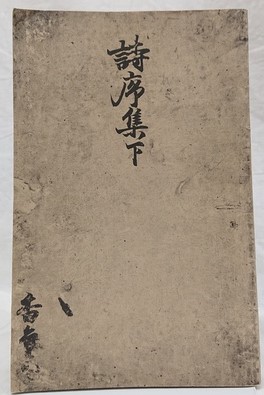 詩序集下
香